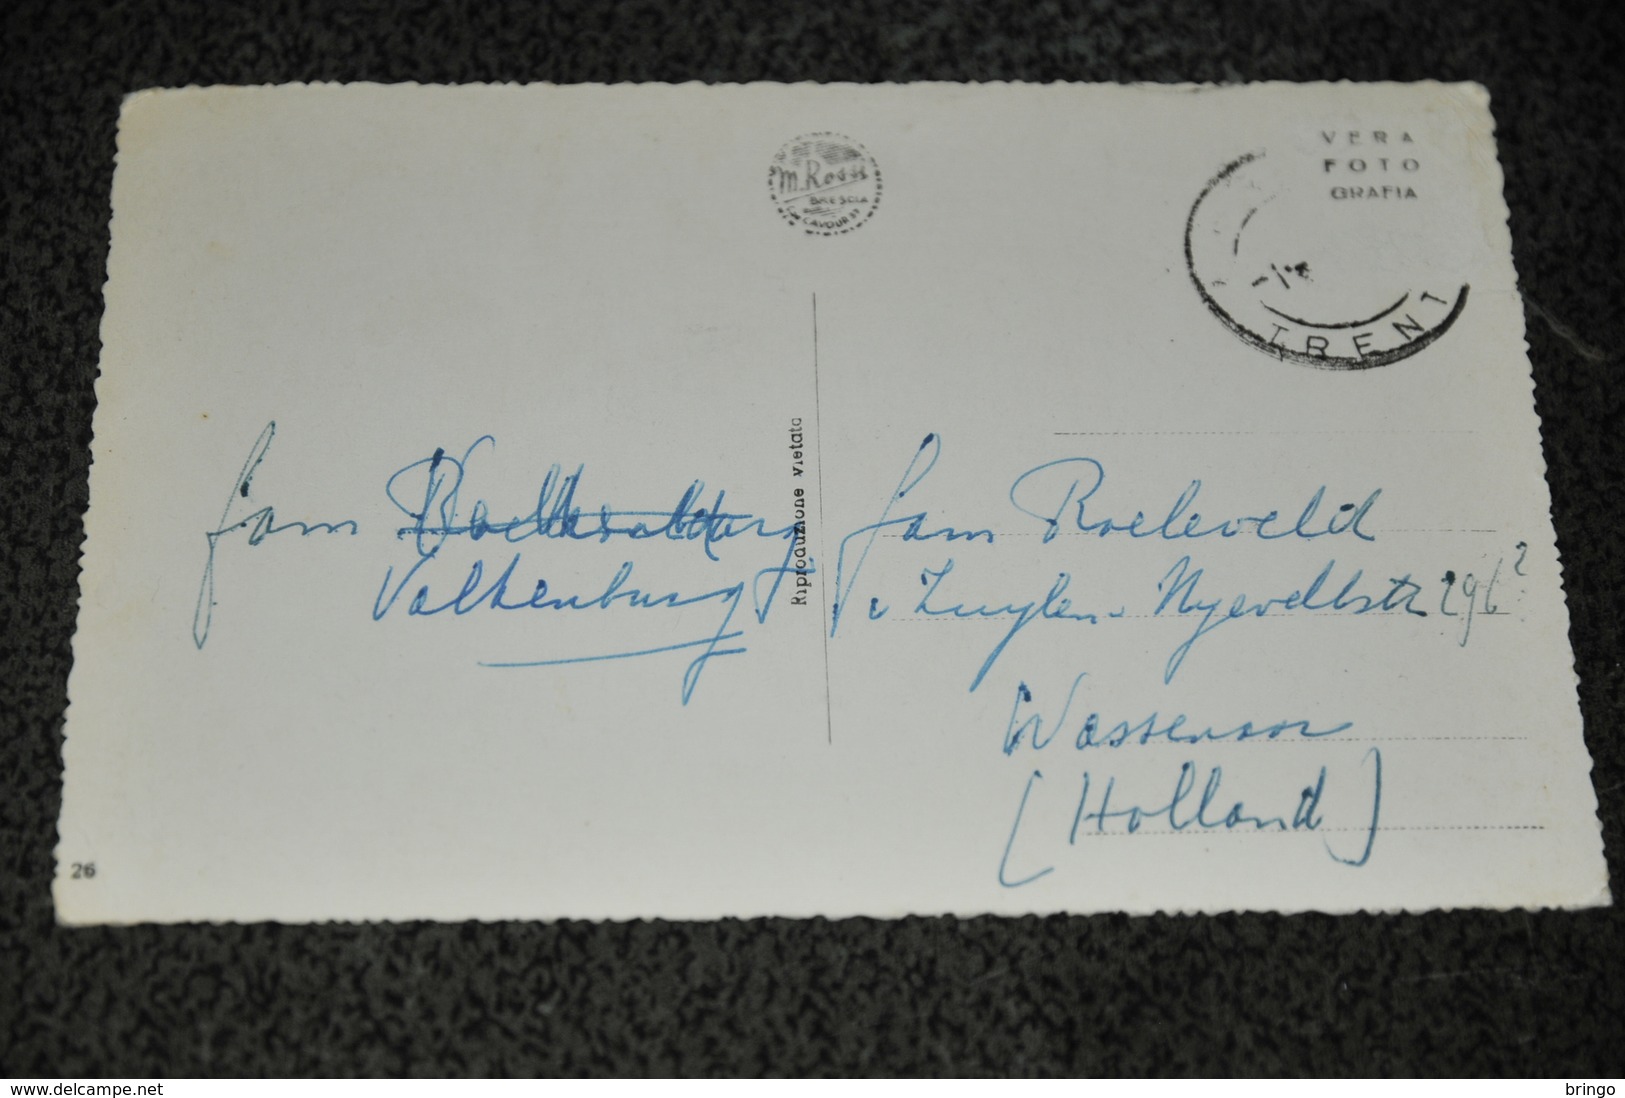 M. Rossi
BRESCIA
CAVOUR
VERA
FOTO
GRAFIA
TRENT
fam
Valkenburg
Riproduzione vietata
fam Roeleveld
v Zuylen v Nyeveltstr 296
Wassenaar
(Holland)
26
www.delcampe.net
bringo